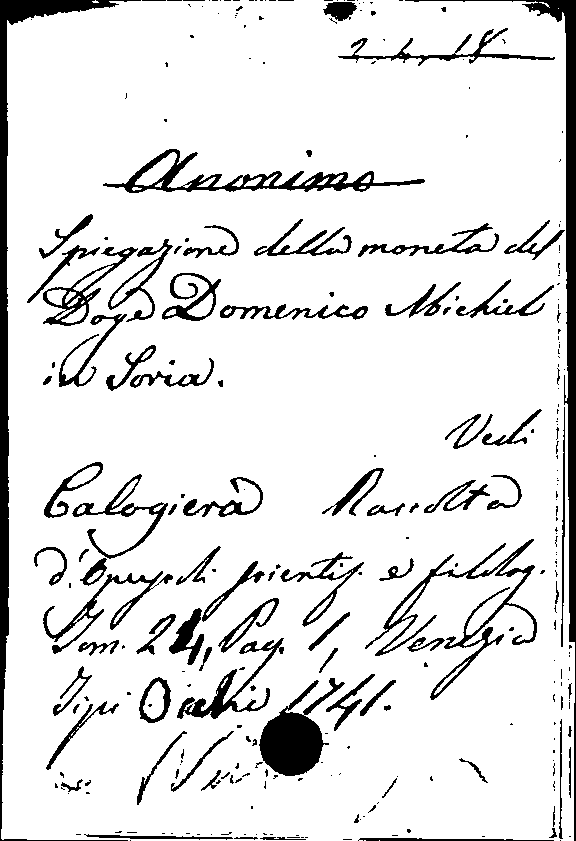 2. 4. 18
Anonimo
Spiegazione della moneta del
Doge Domenico Michiel
in Soria.
Vedi
Calogierà Raccolta
d'Opuscoli scientif. e filolog.
Tom. 24, Pag. 1, Venezia
Tipi Occhi 1741.